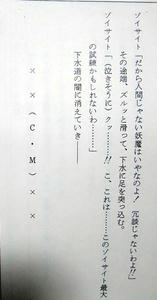 ゾイサイト「だから人間じゃない妖魔はいやなのよ!　冗談じゃないわよ!!
その途端、ズルッと滑って、下水に足を突っ込む。
ゾイサイト「(泣きそうに)クッ……!!　こ、これは……このゾイサイト最大
の試練かもしれないわ………」
下水道の闇に消えていき──
××(C・M)××